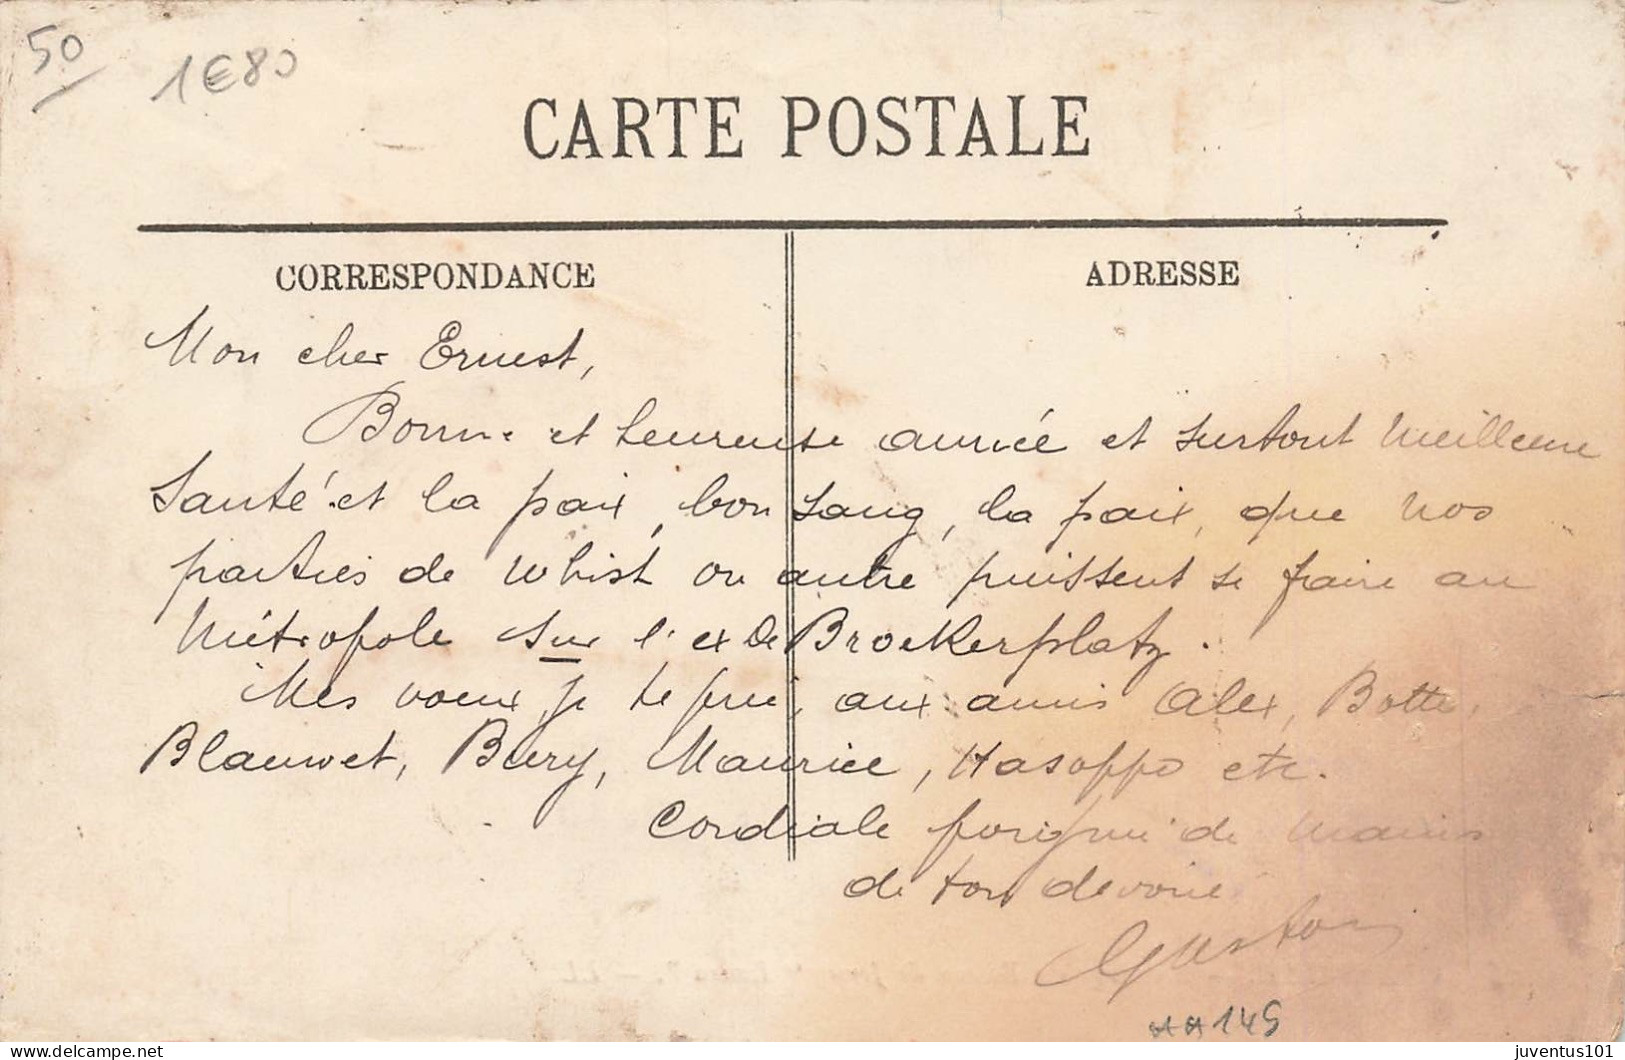 50
1€80
CARTE POSTALE
CORRESPONDANCE
ADRESSE
Mon cher Ernest,
Bonne et heureuse année et surtout meilleure
santé et la paix, bon sang, la paix, que nos
parties de whist ou autre puissent se faire au
Métropole sur l'ex De Broekerplatz.
Mes voeux, je te prie, aux amis Alex, Botte,
Blauwet, Bury, Maurice, Hasoppo etc.
Cordiale poignée de mains
de ton dévoué
Gaston
149
juventus101